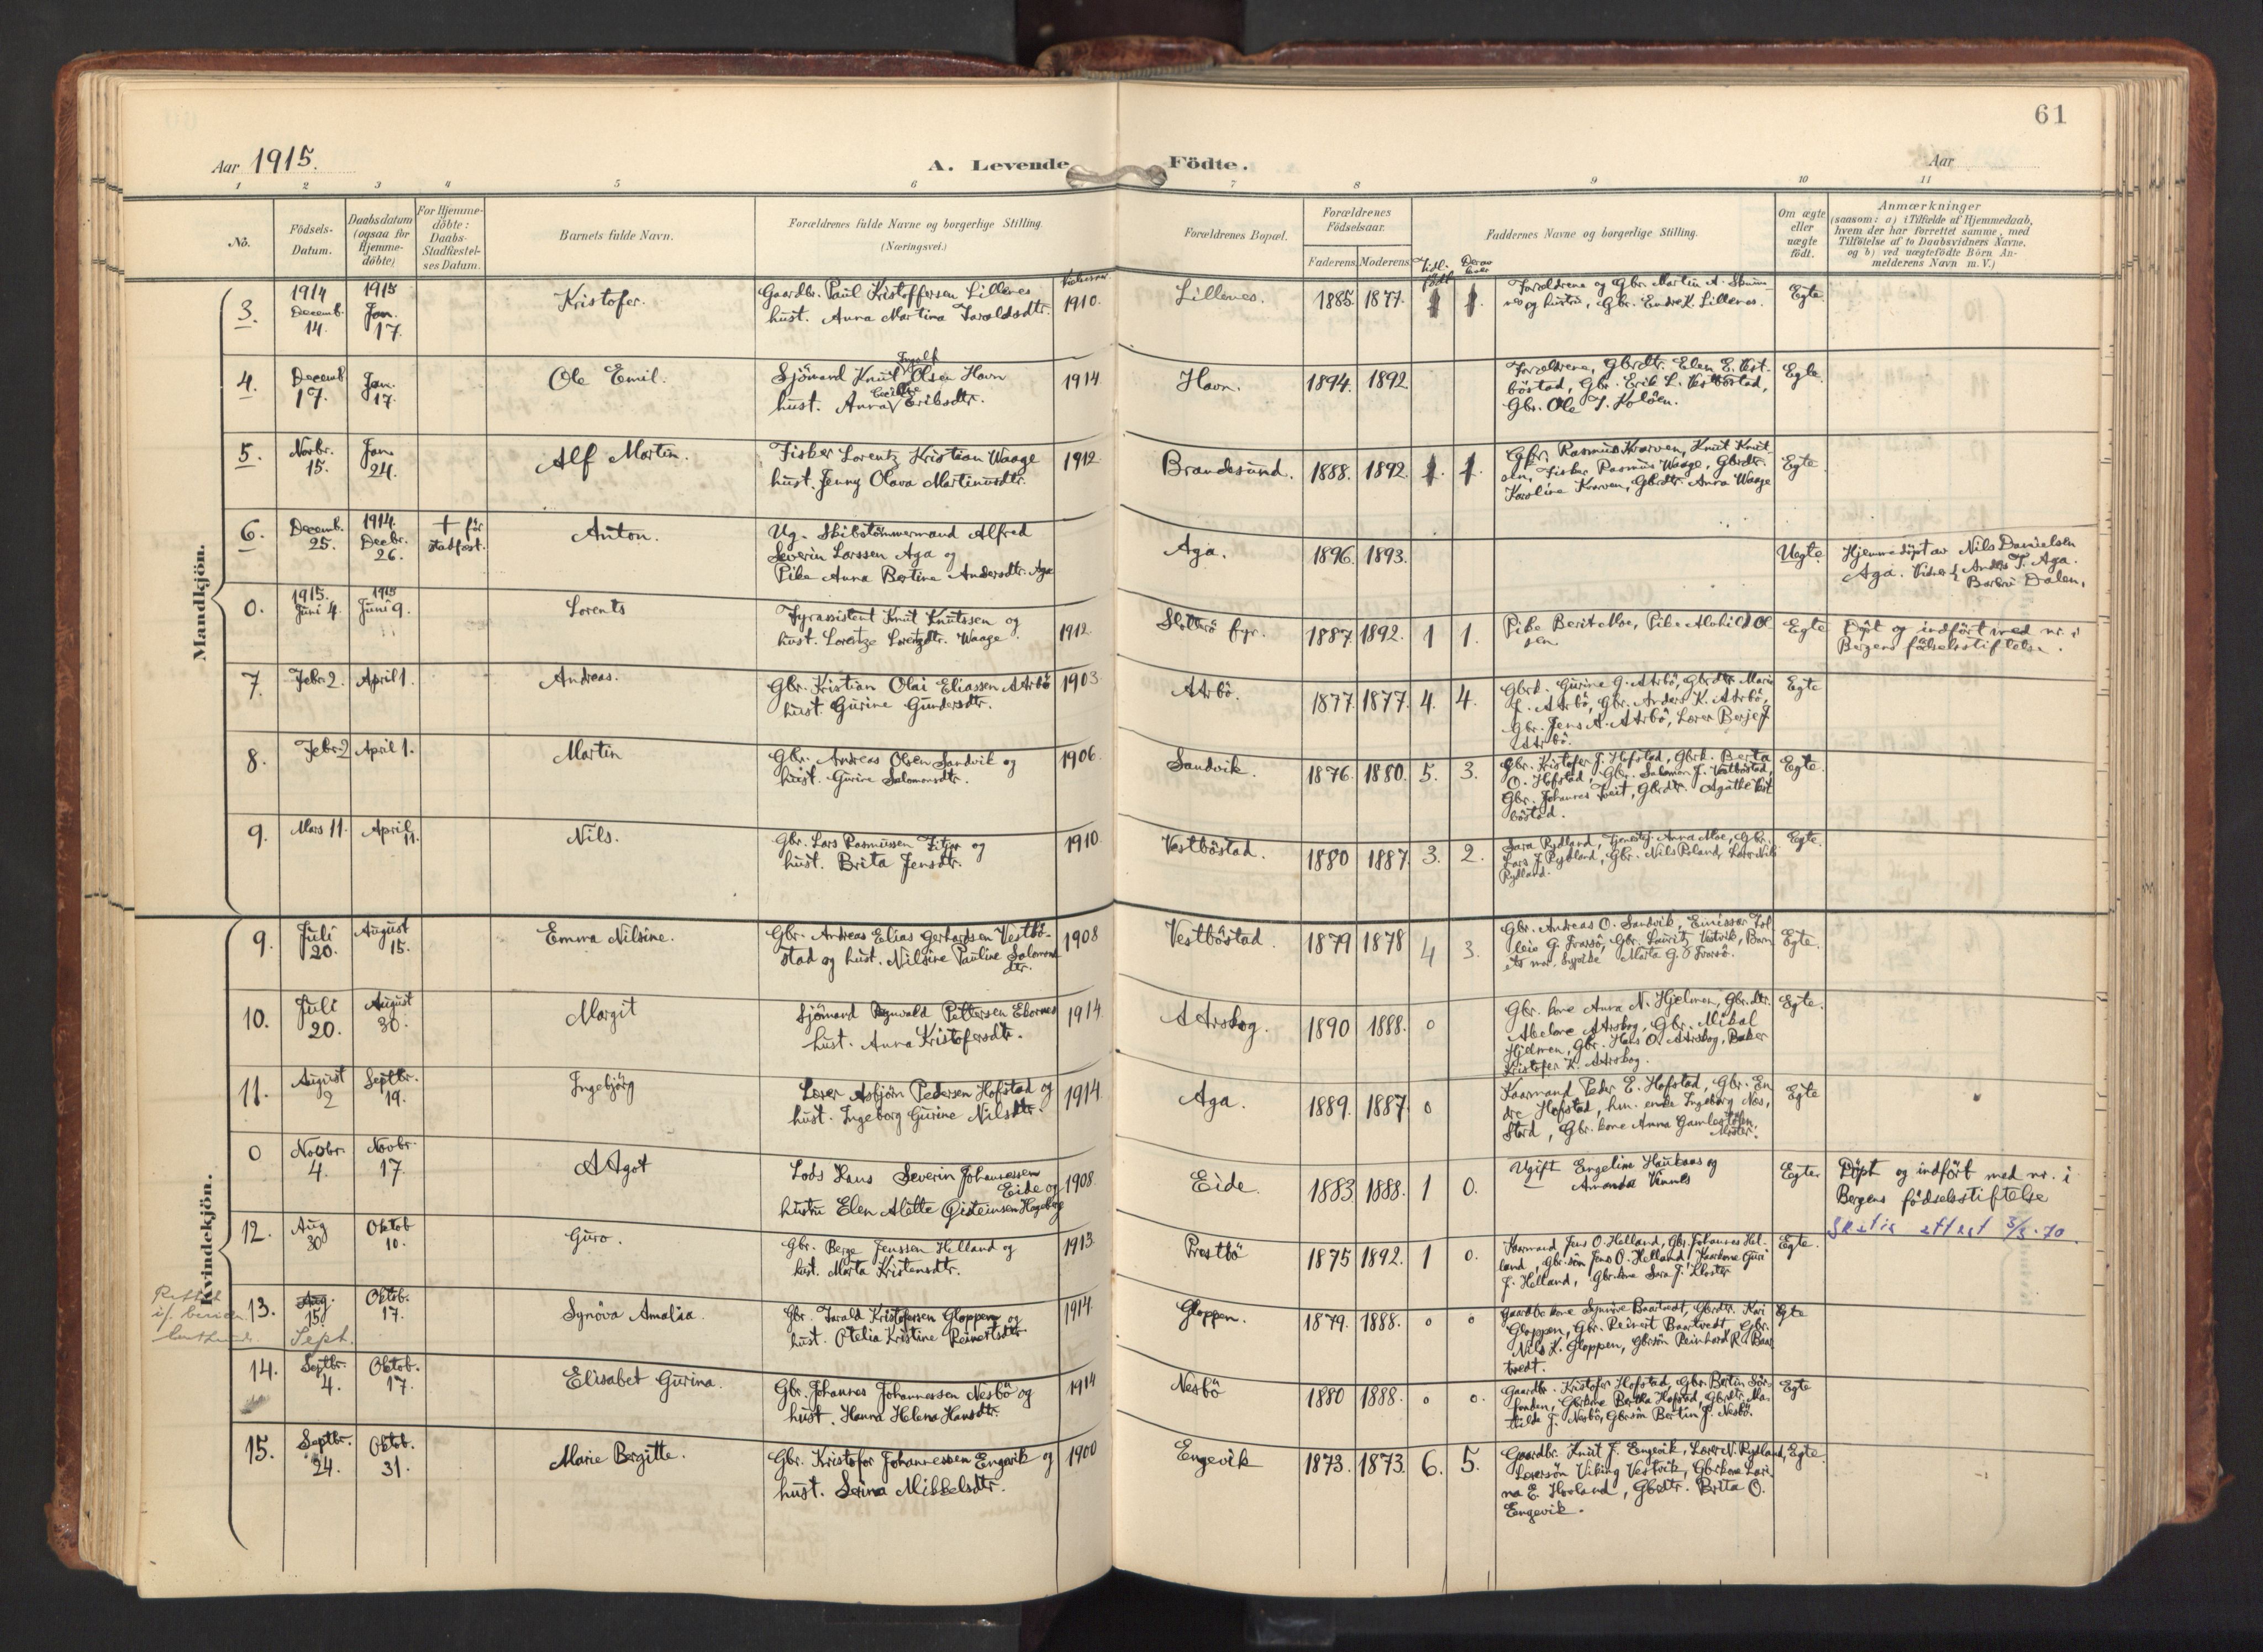 61
Aar 1915.
A. Levende Födte.
Aar
1 2 3 4 5 6 7 8 9 10 11
No.
Födsels-
Datum.
Daabsdatum
(ogsaa for
Hjemme-
döbte)
For Hjemme-
döbte:
Daabs-
Stadfæstel-
ses Datum.
Barnets fulde Navn.
Forældrenes fulde Navne og borgerlige Stilling.
(Næringsvei.)
Forældrenes Bopæl.
Forældrenes
Födselsaar.
Faderens Moderens
Tidl.
födte
Faddernes Navne og borgerlige Stilling.
Om ægte
eller
uægte
födt.
Anmærkninger
(saasom: a) i Tilfælde af Hjemmedaab,
hvem der har forrettet samme, med
Tilföielse af to Daabsvidners Navne.
og b) ved uægtefödte Börn An-
melderens Navn m. V.)
Mandkjön.
3.
1914
Decemb.
14.
1915
Jan.
17.
Kristofer.
Gaardbr. Paul Kristoffersen Lillenes
hust. Anna Martina Taraldsdtr.
1910.
Lillenes.
1885. 1877. 1 1.
Forældrene og Gbr. Martin A.
og hustru, Gbr. Endre K. Lillenes.
Egte.
4.
Decemb
17.
Jan.
17.
Ole Emil.
Ingolf
Sjömand Knut Olsen Havn
Cecilie
hust. Anna Eriksdtr.
1914
Havn.
1894. 1892.
Forældrene, Gbrdtr. Elen E. Vest-
böstad, Gbr. Erik L. Vestböstad,
Gbr. Ole J. Kolöen.
Egte.
5.
Novbr.
15.
Jan.
24.
Alf Martin.
Fisker Lorentz Kristian Waage
hust. Jenny Olava Martinusdtr.
1912.
Brandesund.
1888. 1892. 1. 1.
Gbr. Rasmus Kvarven, Knut Knut-
sen, Fisker Rasmus Waage, Gbrdtr.
Karoline Kvarven, Gbrdtr. Anna Waage
Egte.
6.
Decemb.
25.
1914.
Decbr.
26.
† för
stadfæst.
Anton.
Ug. Skibstömmermand Alfred
Severin Larssen Aga og
Pike Anna Bertine Andersdtr. Aga
Aga.
1896. 1893.
Uegte
Hjemmedöpt av Nils Danielsen
Aga. Vidner: Anders T. Aga.
Barbru Dalen.
0.
1915.
Juni 4.
1915
Juni 9.
Lorents
Fyrassistent Knut Knutssen og
hust. Lorentze Lorentzdtr. Waage
1912.
Slotterö fyr.
1887. 1892. 1 1.
Pike Berit Moe, Pike Alvhild Ol
sen.
Egte
Döpt og indfört med nr. i
Bergens fødselsstiftelse.
7.
Febr. 2.
April 1.
Andreas.
Gbr. Kristian Olai Eliassen AArbö
hust. Gurine Gundersdtr.
1903.
AArbö.
1877. 1877. 4. 4.
Gbrk. Gurine G. AArbö, Gbrdtr. Marie
AArbö, Gbr. Anders K. AArbö,
Gbr. Jens A. AArbö, Lærer Berje J
AArbö.
Egte
8.
Febr. 2
April 1.
Martin
Gbr. Andreas Olsen Sandvik og
hust. Gurine Salomonsdtr.
1906.
Sandvik.
1876. 1880. 5. 3.
Gbr. Kristofer J. Hofstad, Gbrk. Berta
O. Hofstad, Gbr. Salomon J. Vestböstad,
Gbr. Johannes Tveit, Gbrdtr. Agathe Vest
böstad.
Egte.
9.
Mars 11.
April
11.
Nils.
Gbr. Lars Rasmussen Fitjar og
hust. Brita Jensdtr.
1910.
Vestböstad.
1880 1887. 3. 2.
Sara Rydland, Tjenestej. Anna Moe, Gbr.
Lars J. Rydland, Gbr. Nils Roland, Lærer Nils
Rydland.
Egte.
Kvindekjön.
9.
Juli
20.
August
15.
Emma Nilsine.
Gbr. Andreas Elias Gerhardsen Vestbö-
stad og hust. Nilsine Pauline Salomons
dtr.
1908
Vestböstad.
1879 1878 4 3.
Gbr. Andreas O. Sandvik, Emissær Tol
leiv G. Trovsö, Gbr. Lauritz Vestvik, Barn
ets mor, Marta G. Trovsö.
Egte.
10.
Juli
20.
August
30.
Margit
Sjömand Ragnvald Pettersen Ekornes
hust. Anna Kristofersdtr.
1914.
AArskog.
1890 1888. 0
Gbr. kone Anna N. Hjelmen, Gbr. dtr.
Abelone AArskog, Gbr. Mikal
Hjelmen, Gbr. Hans O. AArskog, Baker
Kristofer K. AArskog.
Egte.
11.
August
2
Septbr.
19.
Ingebjörg
Lærer Asbjörn Pedersen Hofstad og
hust. Ingeborg Gurine Nilsdtr.
1914.
Aga.
1889. 1887. 0
Kaarmand Peder E. Hofstad, Gbr. En
dre Hofstad, hm. enke Ingeborg Nas,
Stord, Gbr. kone Anna Gamlestölen,
Moster.
Egte
0
Novbr.
4.
Novbr.
17.
AAgot
Lods Hans Severin Johannessen
Eide og
hustru Elen Malitte Gisteinsen Hageberg
1908.
Eide.
1883. 1888. 1 0.
Ugift Engeline Haukaas og
Amanda Vinnes
Egte.
Döpt og indfört med nr. i
Bergens födselsstiftelse
attest 3/3-70.
12.
Aug
30
Oktob
10.
Guro.
Gbr. Berge Jenssen Helland og
hust. Marta Kristensdtr.
1913.
Prestbö
1875 1892. 1 0.
Kaarmand Jens O. Helland, Gbr. Johannes Hel-
land, Gbr. sön Jens O. Helland, Kaarkone Guri
J. Helland, Gbr. kone Sara J. Kloster
Egte.
13.
Aug.
15
Sept.
Oktob.
17.
Synöva Amalia.
Gbr. Tarald Kristofersen Gloppen og
hust. Otelia Kristine Reinertsdtr
1914.
Gloppen.
1879. 1888. 0 0
Gaardbr. kone Synnöve Baartvedt, Gbrdtr. Kari
Gloppen, Gbr. Reinert Baartvedt, Gbr.
Nils K. Gloppen, Gbrsön Reinhard R. Baar
tvedt.
Egte
14.
Septbr.
4.
Oktob.
17.
Elisabet Gurina.
Gbr. Johannes Johannessen Nesbö og
hust. Hanna Helena Hansdtr.
1914
Nesbö
1880 1888. 0 0.
Gaardbr. Kristofer Hofstad, Gbr. Bertin Sör-
fonden, Gbrkone Bertha Hofstad, Gbrdtr. Ma-
tilde J. Nesbö, Gbrsön Bertin J. Nesbö.
Egte
15.
Septbr.
24.
Oktob.
31.
Marie Bergitte.
Gbr. Kristofor Johannessen Engevik og
hust. Serina Mikkelsdtr.
1900
Engevik
1873. 1873. 6. 5.
Gaardbr. Knut J. Engevik, Lærer N. Rydland,
Lærersön Viking Vestvik, Gbrkone Lari
na E. Hovland, Gbrdtr. Brita O.
Engevik.
Egte.